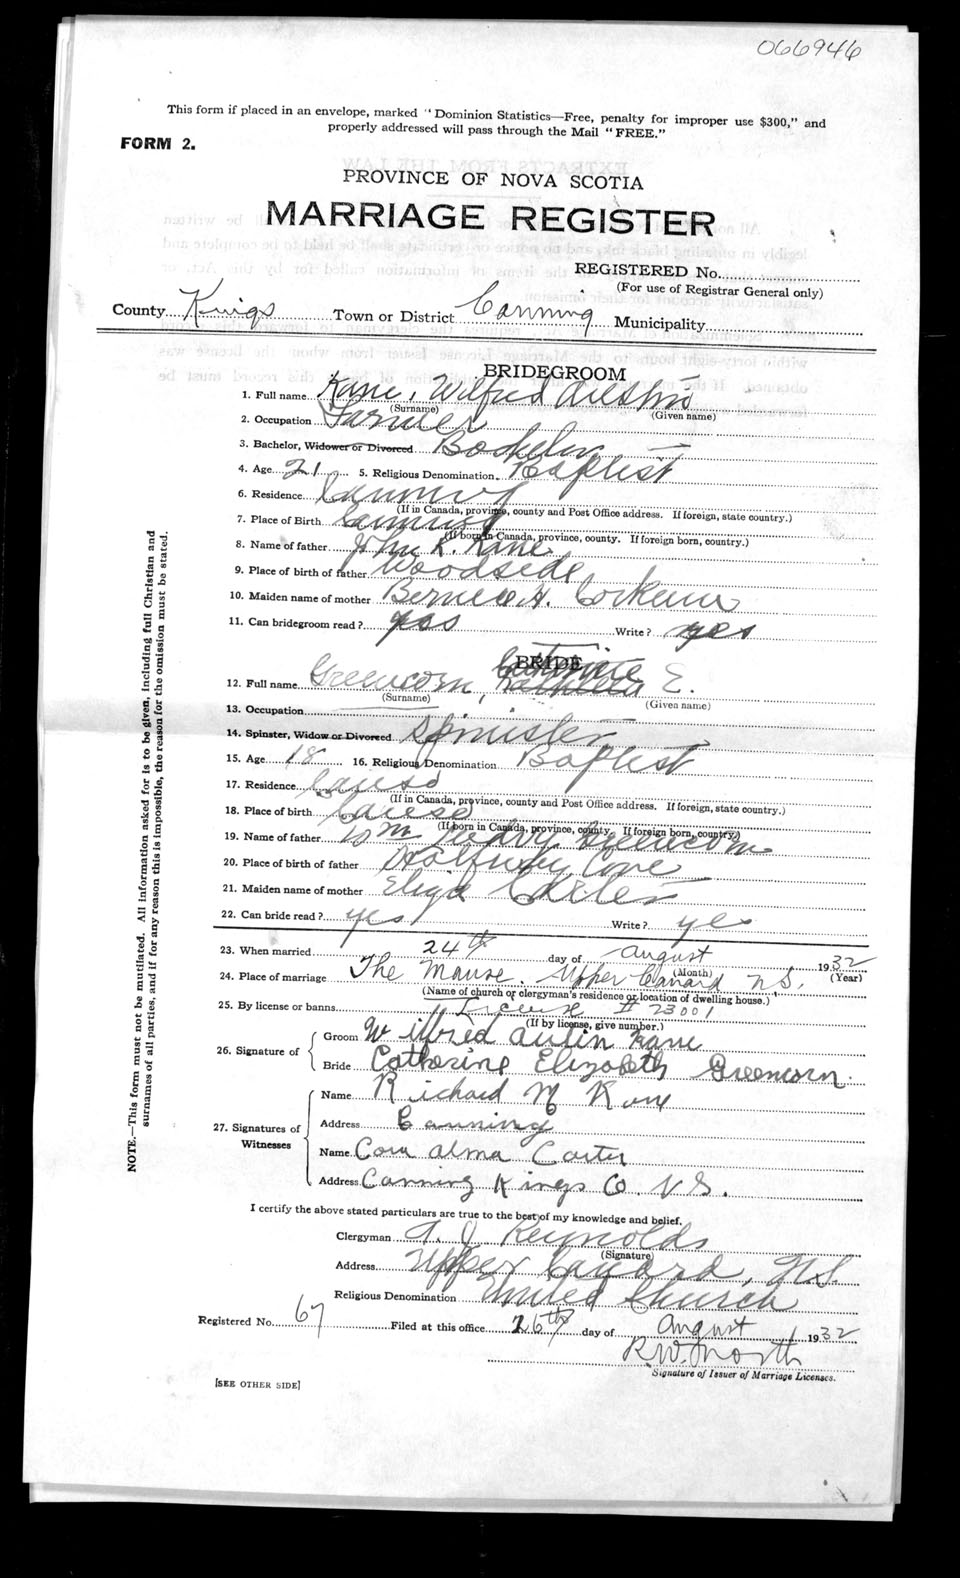 066946
This form if placed in an envelope, marked "Dominion Statistics—Free, penalty for improper use $300," and
properly addressed will pass through the Mail "FREE."
FORM 2.
PROVINCE OF NOVA SCOTIA
MARRIAGE REGISTER
REGISTERED No.
(For use of Registrar General only)
County Kings Town or District Canning Municipality
BRIDEGROOM
1. Full name Kane, Wilfred
(Surname) (Given name)
2. Occupation Farmer
3. Bachelor, Widower or Divorced Bachelor
4. Age 21 5. Religious Denomination Baptist
6. Residence Canning
(If in Canada, province, county and Post Office address. If foreign, state country.)
7. Place of Birth Canning
(If born in Canada, province, county. If foreign born, country.)
8. Name of father John R. Kane
9. Place of birth of father Woodside
10. Maiden name of mother Bernice H.
11. Can bridegroom read? yes Write? yes
BRIDE
12. Full name Greencorn, Catherine E.
(Surname) (Given name)
13. Occupation
14. Spinster, Widow or Divorced Spinster
15. Age 18 16. Religious Denomination Baptist
17. Residence Canso
(If in Canada, province, county and Post Office address. If foreign, state country.)
18. Place of birth Canso
(If born in Canada, province, county. If foreign born, country.)
19. Name of father Wm Greencorn
20. Place of birth of father Halfway Cove
21. Maiden name of mother Eliza
22. Can bride read? yes Write? yes
23. When married 24th day of August 1932
(Month) (Year)
24. Place of marriage The Manse, Upper Canard N.S.
(Name of church or clergyman's residence or location of dwelling house.)
25. By license or banns License # 23001
(If by license, give number.)
26. Signature of
Groom Wilfred Austin Kane
Bride Catherine Elizabeth Greencorn
27. Signatures of Witnesses
Name Richard M Kane
Address Canning
Name Cora Alma Carter
Address Canning Kings Co. N.S.
I certify the above stated particulars are true to the best of my knowledge and belief.
Clergyman A. J. Reynolds
(Signature)
Address Upper Canard, N.S.
Religious Denomination United Church
Registered No. 67 Filed at this office 26th day of August 1932
R.W. North
Signature of Issuer of Marriage Licenses.
[SEE OTHER SIDE]
NOTE.—This form must not be mutilated. All information asked for is to be given, including full Christian and
surnames of all parties, and if for any reason this is impossible, the reason for the omission must be stated.